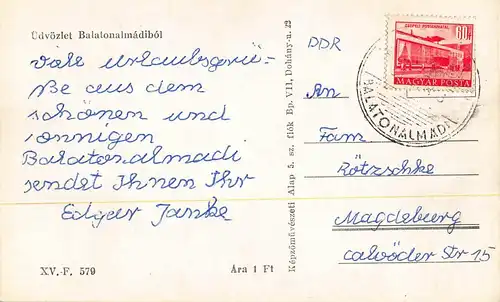 Üdvözlet Balatonalmádiból
viele Urlaubsgrü-
ße aus dem
schönen und
sonnigen
Balatonalmadi
sendet Ihnen Ihr
Edgar Janke
XV.-F. 579
Ára 1 Ft
Képzőművészeti Alap 5. sz. fiók Bp. VII, Dohány-u. 22
DDR
60f
MAGYAR POSTA
BALATONALMÁDI
An
Fam
Rötzschke
Magdeburg
Calvöder Str 15